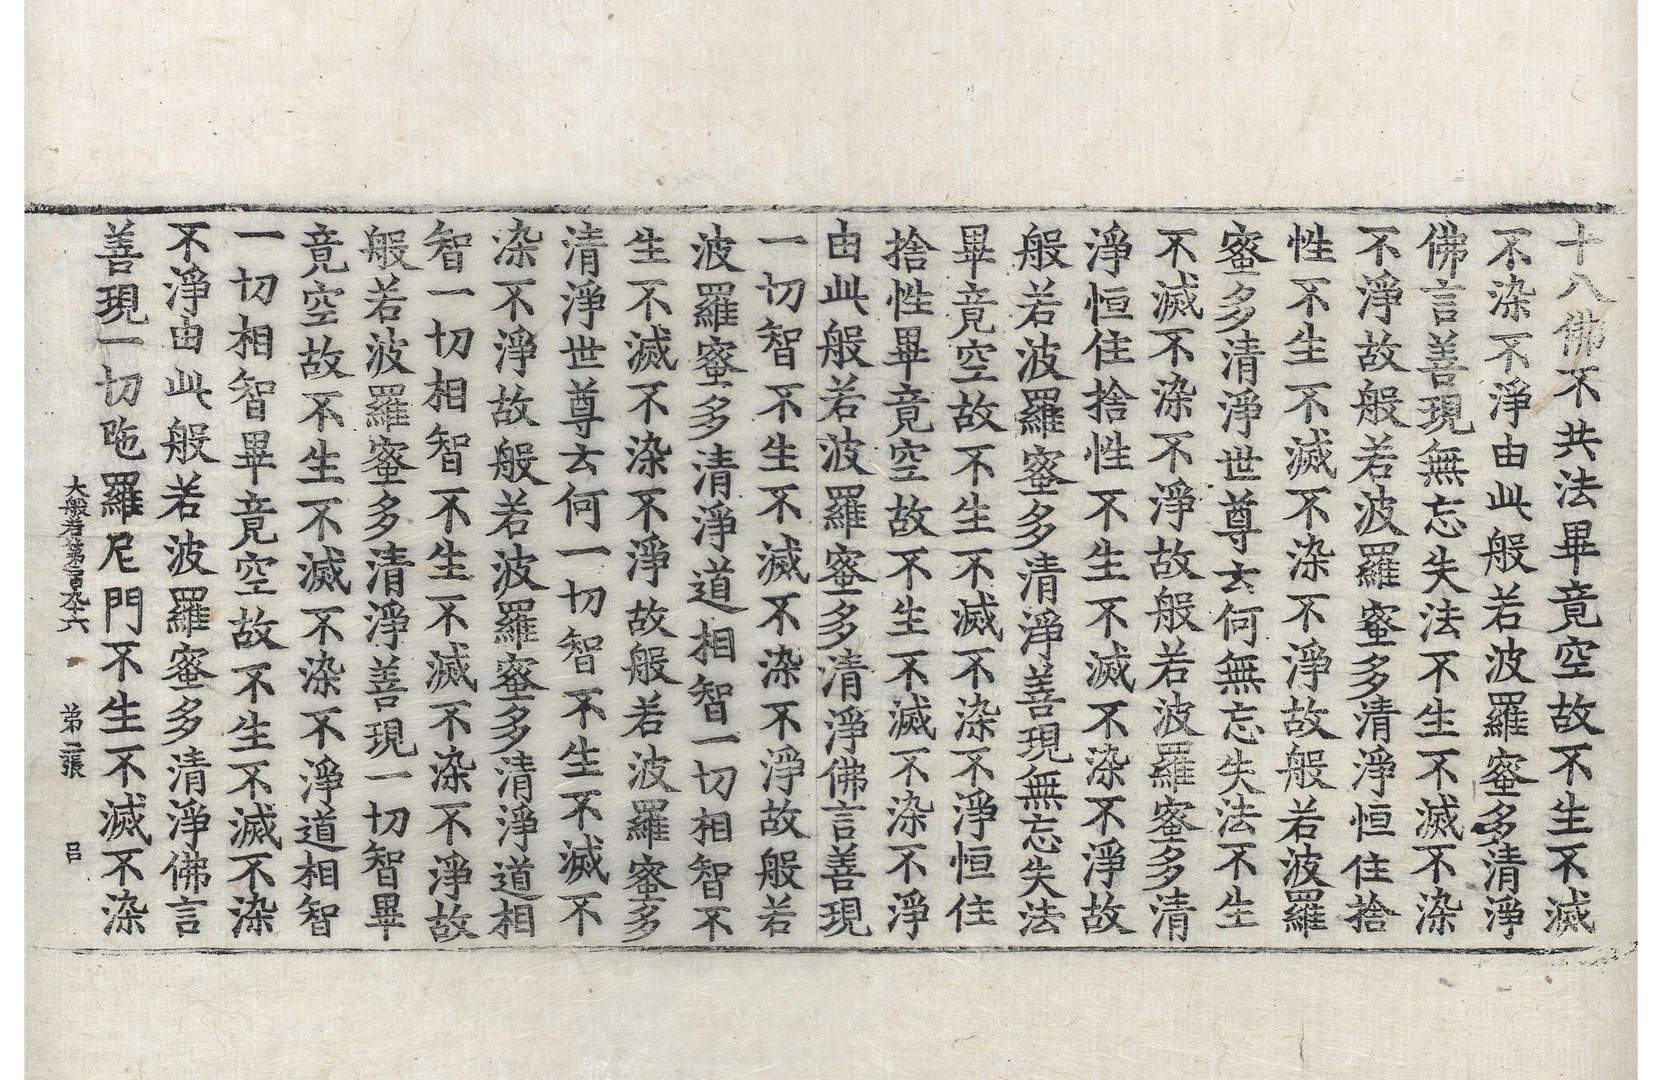 十八佛不共法畢竟空故不生不滅
不染不淨由此般若波羅蜜多清淨
佛言善現無忘失法不生不滅不染
不淨故般若波羅蜜多清淨恒住捨
性不生不滅不染不淨故般若波羅
蜜多清淨世尊云何無忘失法不生
不滅不染不淨故般若波羅蜜多清
淨恒住捨性不生不滅不染不淨故
般若波羅蜜多清淨善現無忘失法
畢竟空故不生不滅不染不淨恒住
捨性畢竟空故不生不滅不染不淨
由此般若波羅蜜多清淨佛言善現
一切智不生不滅不染不淨故般若
波羅蜜多清淨道相智一切相智不
生不滅不染不淨故般若波羅蜜多
清淨世尊云何一切智不生不滅不
染不淨故般若波羅蜜多清淨道相
智一切相智不生不滅不染不淨故
般若波羅蜜多清淨善現一切智畢
竟空故不生不滅不染不淨道相智
一切相智畢竟空故不生不滅不染
不淨由此般若波羅蜜多清淨佛言
善現一切陁羅尼門不生不滅不染
大般若第一百九十六 第二張 呂